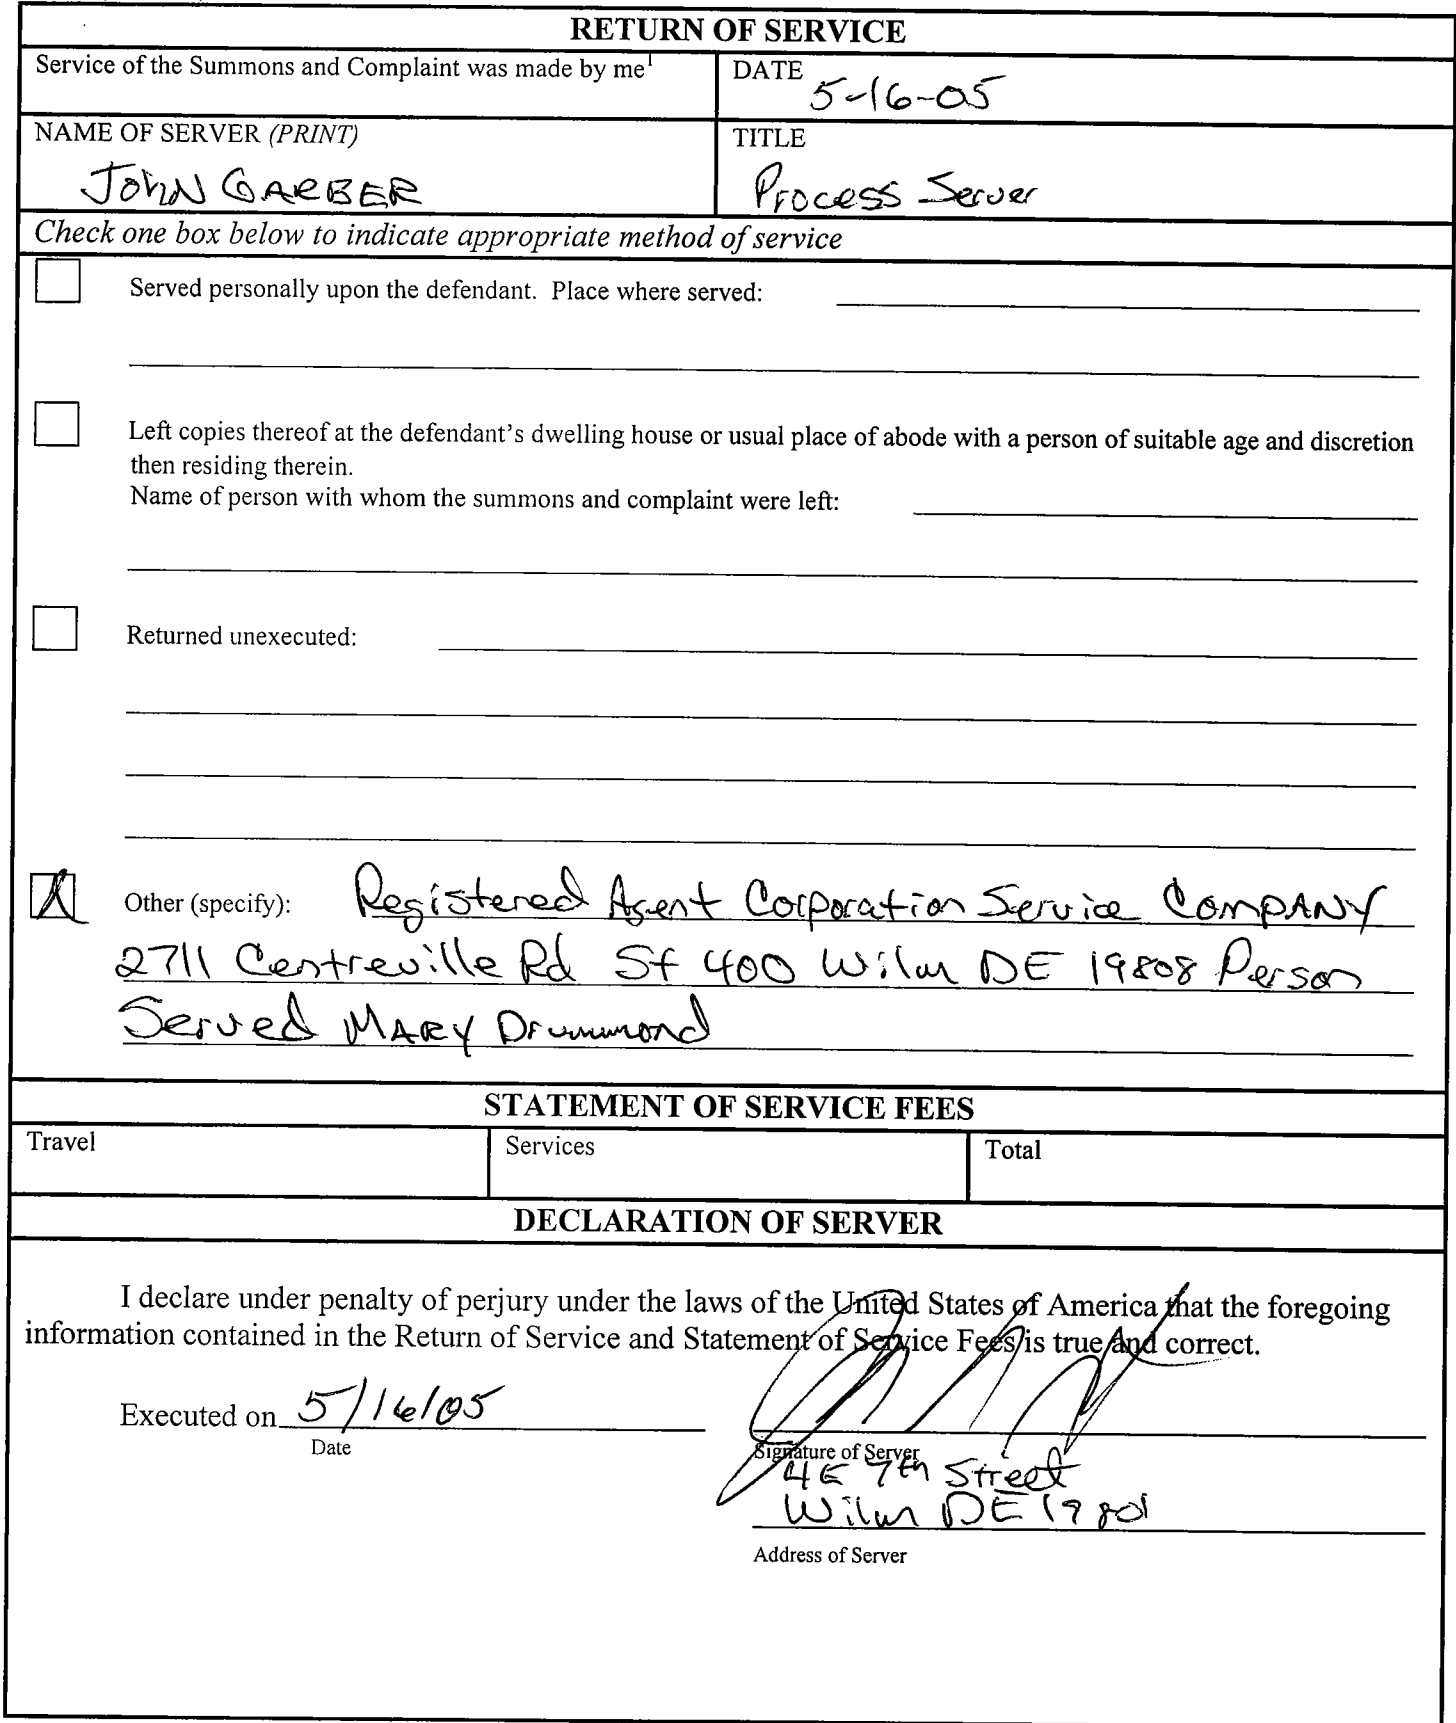 RETURN OF SERVICE
Service of the Summons and Complaint was made by me1
DATE
5-16-05
NAME OF SERVER (PRINT)
JOHN GARBER
TITLE
Process Server
Check one box below to indicate appropriate method of service
Served personally upon the defendant. Place where served:
Left copies thereof at the defendant's dwelling house or usual place of abode with a person of suitable age and discretion
then residing therein.
Name of person with whom the summons and complaint were left:
Returned unexecuted:
Other (specify): Registered Agent Corporation Service COMPANY
2711 Centreville Rd St 400 Wilm DE 19808 Person
Served MARY Drummond
STATEMENT OF SERVICE FEES
Travel
Services
Total
DECLARATION OF SERVER
I declare under penalty of perjury under the laws of the United States of America that the foregoing
information contained in the Return of Service and Statement of Service Fees is true and correct.
Executed on 5/16/05
Date
Signature of Server
4E 7th Street
Wilm DE 19801
Address of Server